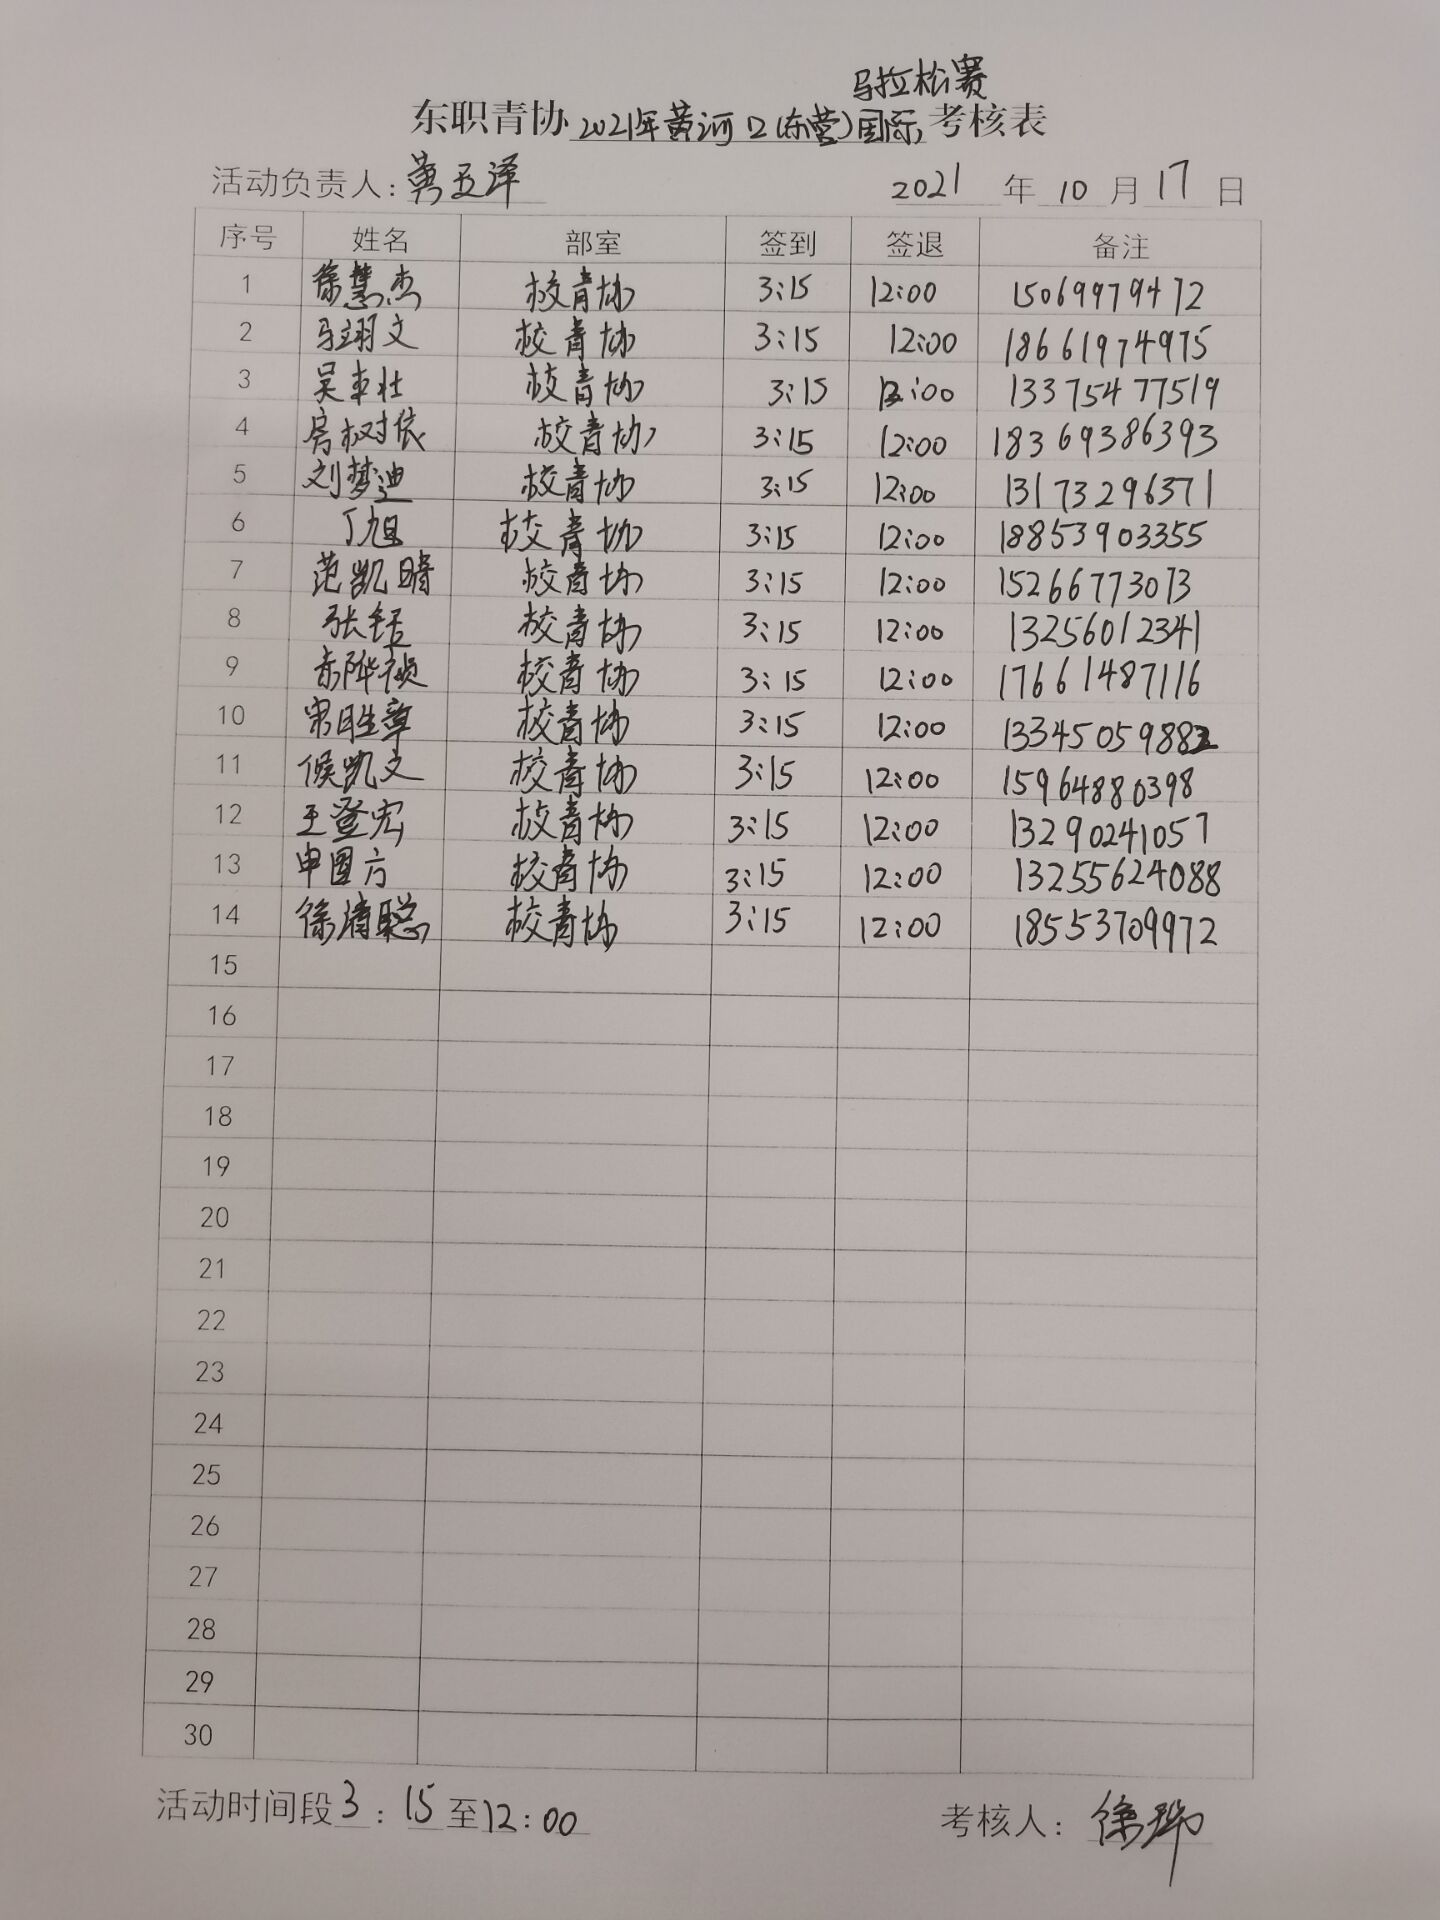 马拉松赛
东职青协 2021年黄河口(东营)国际 考核表
活动负责人: 2021 年 10 月 17 日
序号 姓名 部室 签到 签退 备注
1 徐慧杰 校青协 3:15 12:00 15069979472
2 马翊文 校青协 3:15 12:00 18661974975
3 校青协 3:15 12:00 13375477519
4 房树依 校青协 3:15 12:00 18369386393
5 刘梦迪 校青协 3:15 12:00 13173296371
6 丁旭 校青协 3:15 12:00 18853903355
7 范凯晴 校青协 3:15 12:00 15266773073
8 张钰 校青协 3:15 12:00 13256012341
9 校青协 3:15 12:00 17661487116
10 校青协 3:15 12:00 13345059882
11 侯凯文 校青协 3:15 12:00 15964880398
12 王登宏 校青协 3:15 12:00 13290241057
13 申国方 校青协 3:15 12:00 13255624088
14 徐清聪 校青协 3:15 12:00 18553709972
15
16
17
18
19
20
21
22
23
24
25
26
27
28
29
30
活动时间段 3:15 至 12:00 考核人: 徐